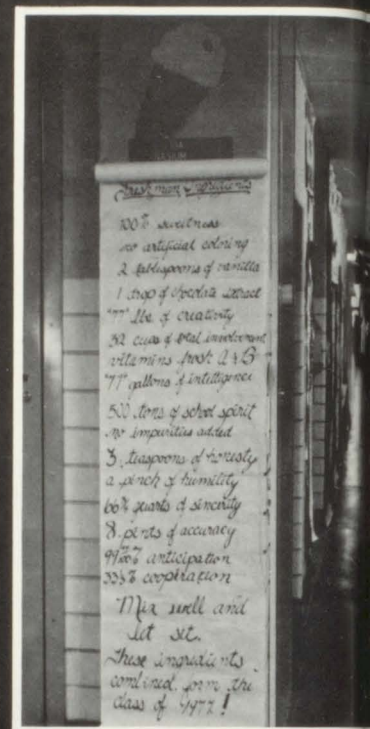 Freshman Ingredients
100% sweetness
no artificial coloring
2 tablespoons of vanilla
1 drop of chocolate extract
"77" lbs of creativity
32 cups of total involvement
vitamins frosh A & B
"77" gallons of intelligence
500 tons of school spirit
no impurities added
3 teaspoons of honesty
a pinch of humility
66⅔ quarts of sincerity
8 pints of accuracy
anticipation
33⅓% cooperation
Mix well and
let set.
These ingredients
combined form the
class of 1977!